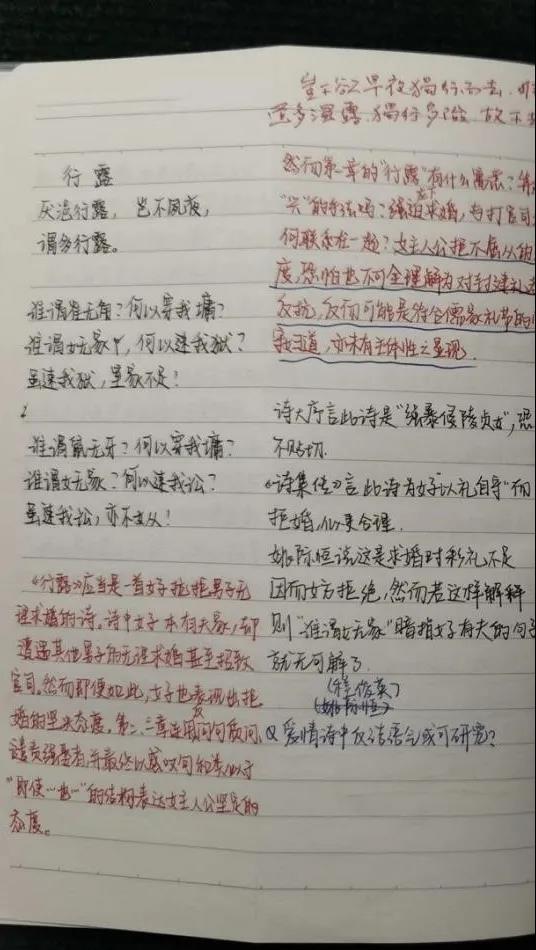 行露
厌浥行露，岂不夙夜，
谓多行露。
谁谓雀无角？何以穿我墉？
谁谓女无家，何以速我狱？
虽速我狱，室家不足！
谁谓鼠无牙？何以穿我墉？
谁谓女无家？何以速我讼？
虽速我讼，亦不女从！
《行露》应当是一首女子拒绝男子无
理求婚的诗。诗中女子本有夫家，却
遭遇其他男子的无理求婚甚至招致
官司。然而即便如此，女子也表现出拒
婚的坚决态度。第二、三章连用问句反质问、
谴责强暴者，并最终以感叹句和类似于
“即使…也…”的结构表达女主人公坚定的
态度。
岂不欲早夜独行而去，
道多湿露，独行多险，故不
然而第一章的“行露”有什么寓意？
“兴”的手法吗？强迫求婚，与打官司
何联系在一起？女主人公拒不屈从的
度，恐怕也不可全理解为对封建礼
反抗，反而可能是符合儒家礼节的
我道，亦未有主体性之显现。
诗大序言此诗是“强暴侵陵贞女”，恐
不贴切.
《诗集传》言此诗为女子以礼自守“而
拒婚，似更合理.
姚际恒说这是求婚时彩礼不足
因而女方拒绝，然而若这样解释
则“谁谓女无家”暗指女子有夫的句子
就无可解了.
(程俊英)
(姚际恒)
Q 爱情诗中反诘语气或可研究？